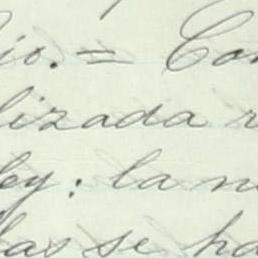 io. = Con
lizada
ley: la
las se ha